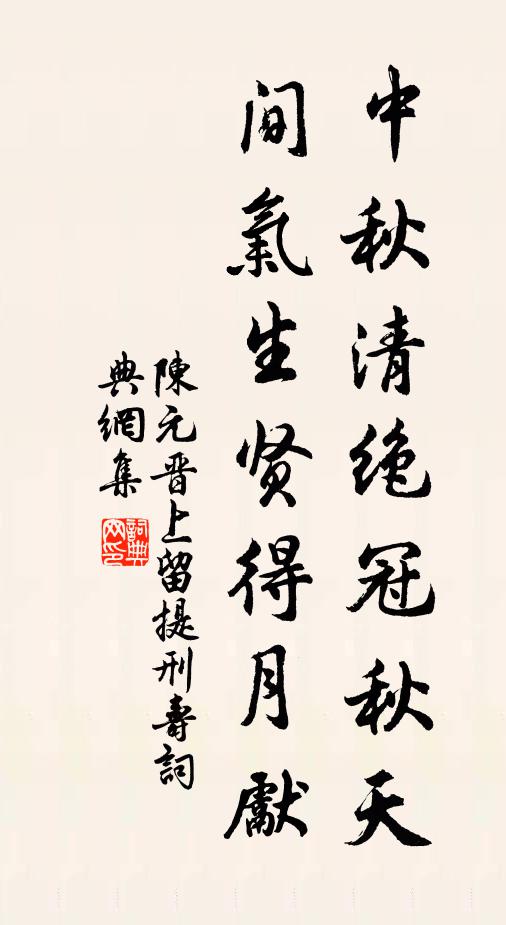 中秋清绝冠秋天
间氣生贤得月獻
陳元晋上留提刑壽詞
典網集
詞典
网印